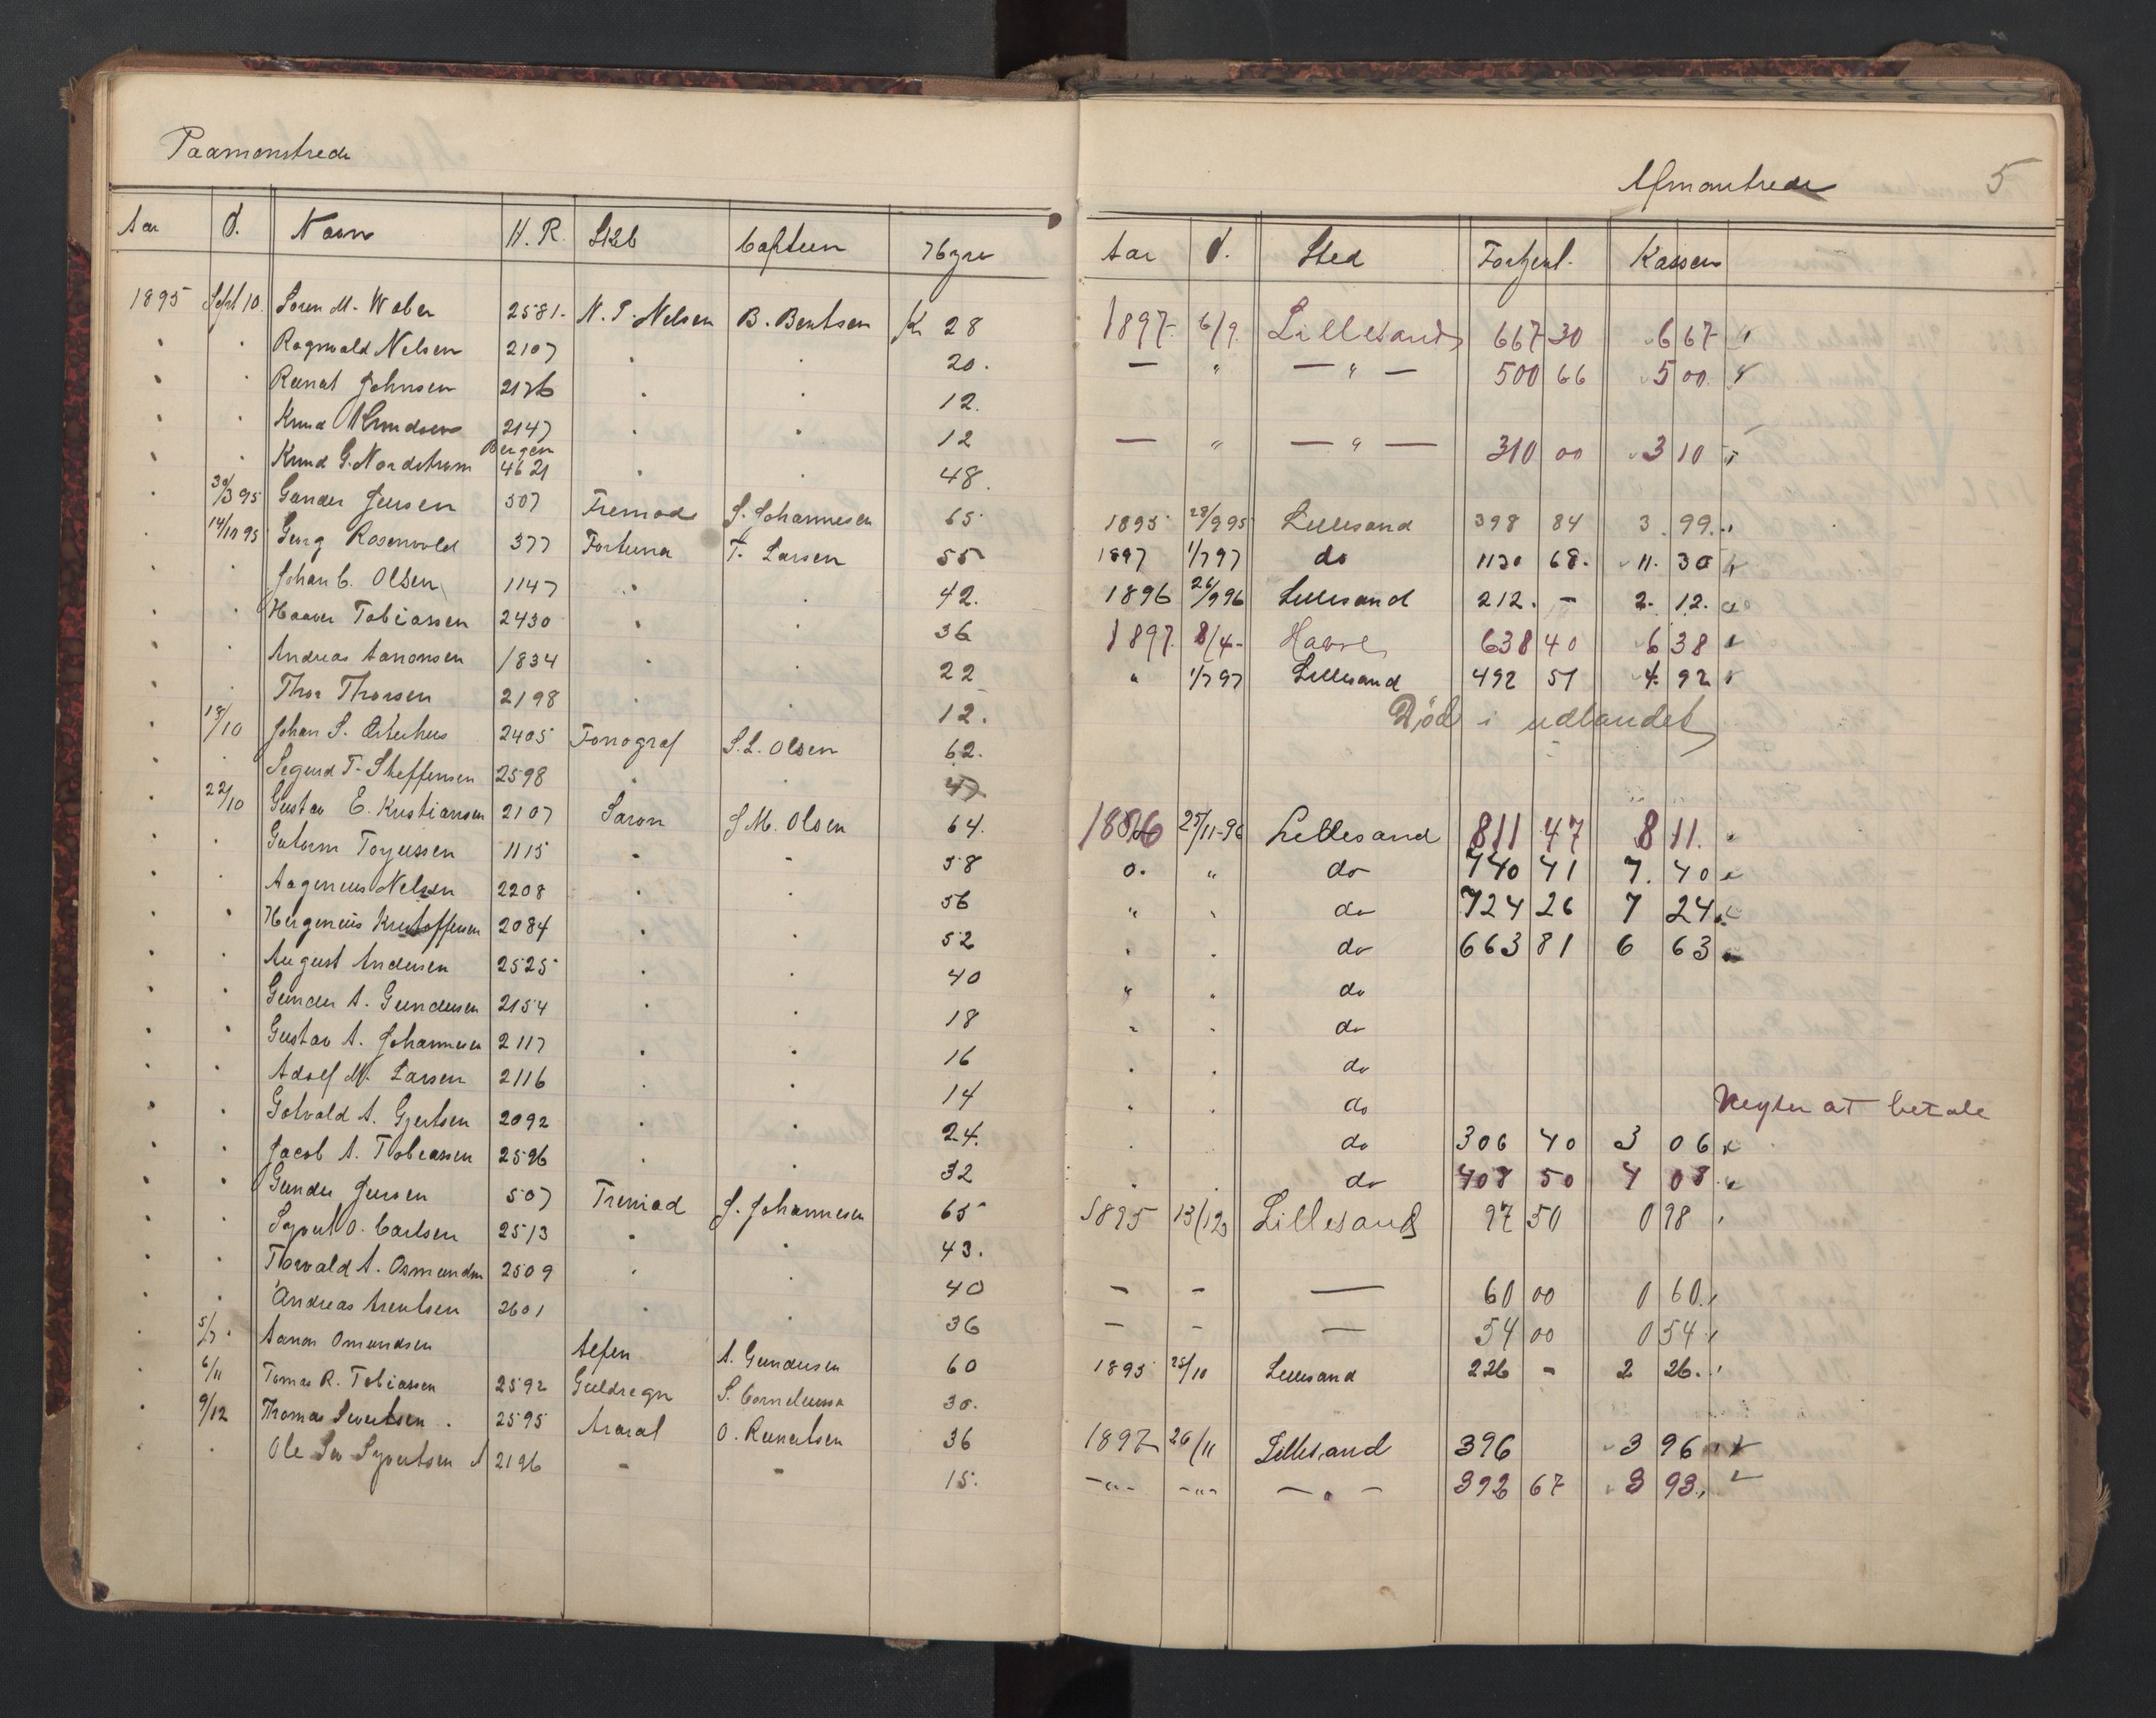 Paamønstrede
Afmønstrede 5
Aar d. Navn H. R. Skib Captein Hyre
Aar d. Sted Fortjent. Kassen
1895 Sept 10. Søren M. Weber 2581. N. P. Nelsen B. Bentsen Kr 28 1897. 6/9. Lillesand 667 30 6 67
" " Ragnvald Nelsen 2107 " " 20. — " — " — 500 66 5 00.
" " Reinat Johnsen 2126 " " 12.
" " Knud Knudsen 2147 " " 12 — " — " — 310 00 3 10
" " Knud G. Nordstrøm Bergen 4621 " " 48.
" 30/3 95 Gunder Jensen 507 Fremad S. Johannesen 65 1895 28/9 95 Lillesand 398 84 3. 99.
" 14/10 95 Georg Rosenvold 377 Fortuna T. Larsen 55 1897 1/7 97 do 1130 68. 11. 30
" " Johan C. Olsen 1147 " " 42. 1896 26/9 96 Lillesand 212. - 2. 12.
" " Haaver Tobiassen 2430 " " 36 1897. 8/4 - Havre 638 40 6 38
" " Andreas Aanonsen 1834 " " 22 " 1/7 97 Lillesand 492 51 4. 92
" " Thor Thorsen 2198 " " 12. Død i udlandet
" 18/10 Johan S. Østerhus 2405 Fonograf S. L. Olsen 62.
" " Sigurd T. Steffensen 2598 " " 47
" 22/10 Gustav E. Kristiansen 2107 Saron J M. Olsen 64. 1896 25/11-96 Lillesand 811 47 8 11.
" " Gutorm Torjussen 1115 " " 58 o. " do 740 41 7. 40
" " Aagenæus Nelsen 2208 " " 56 " " do 724 26 7 24.
" " Hergenius Kristoffersen 2084 " " 52 " " do 663 81 6 63
" " August Andersen 2525 " " 40 " " do
" " Gunder A. Gundersen 2154 " " 18 " " do
" " Gustav A. Johannesen 2117 " " 16 " " do
" " Adolf M. Larsen 2116 " " 14 " " do Negter at betale
" " Gotvald A. Gjertsen 2092 " " 24. " " do 306 40 3 06
" " Jacob A. Tobiassen 2596 " " 32 " " do 408 50 4 08
" " Gunder Jensen 507 Fremad J. Johannesen 65 1895 13/12 Lillesand 97 50 0 98
" " Syvert O. Carlsen 2513 " " 43.
" " Torvald A. Osmundsn 2509 " " 40 - - — 60 00 0 60.
" " Andreas Arentsen 2601 " " 36 - - — 54 00 0 54
" 5/7 Aanon Omundsen Alfen A. Gundersen 60 1895 25/10 Lillesand 226 - 2 26.
" 6/11 Tomas R. Tobiassen 2592 Guldregn S. Corneliussen 30.
" 9/12 Thomas Sivertsen. 2595 Ararat O. Reinertsen 36 1897 26/11 Lillesand 396 3 96
" " Ole Syvertsen 2196 - - 15. -"- -"- — " - 392 67 3 93.